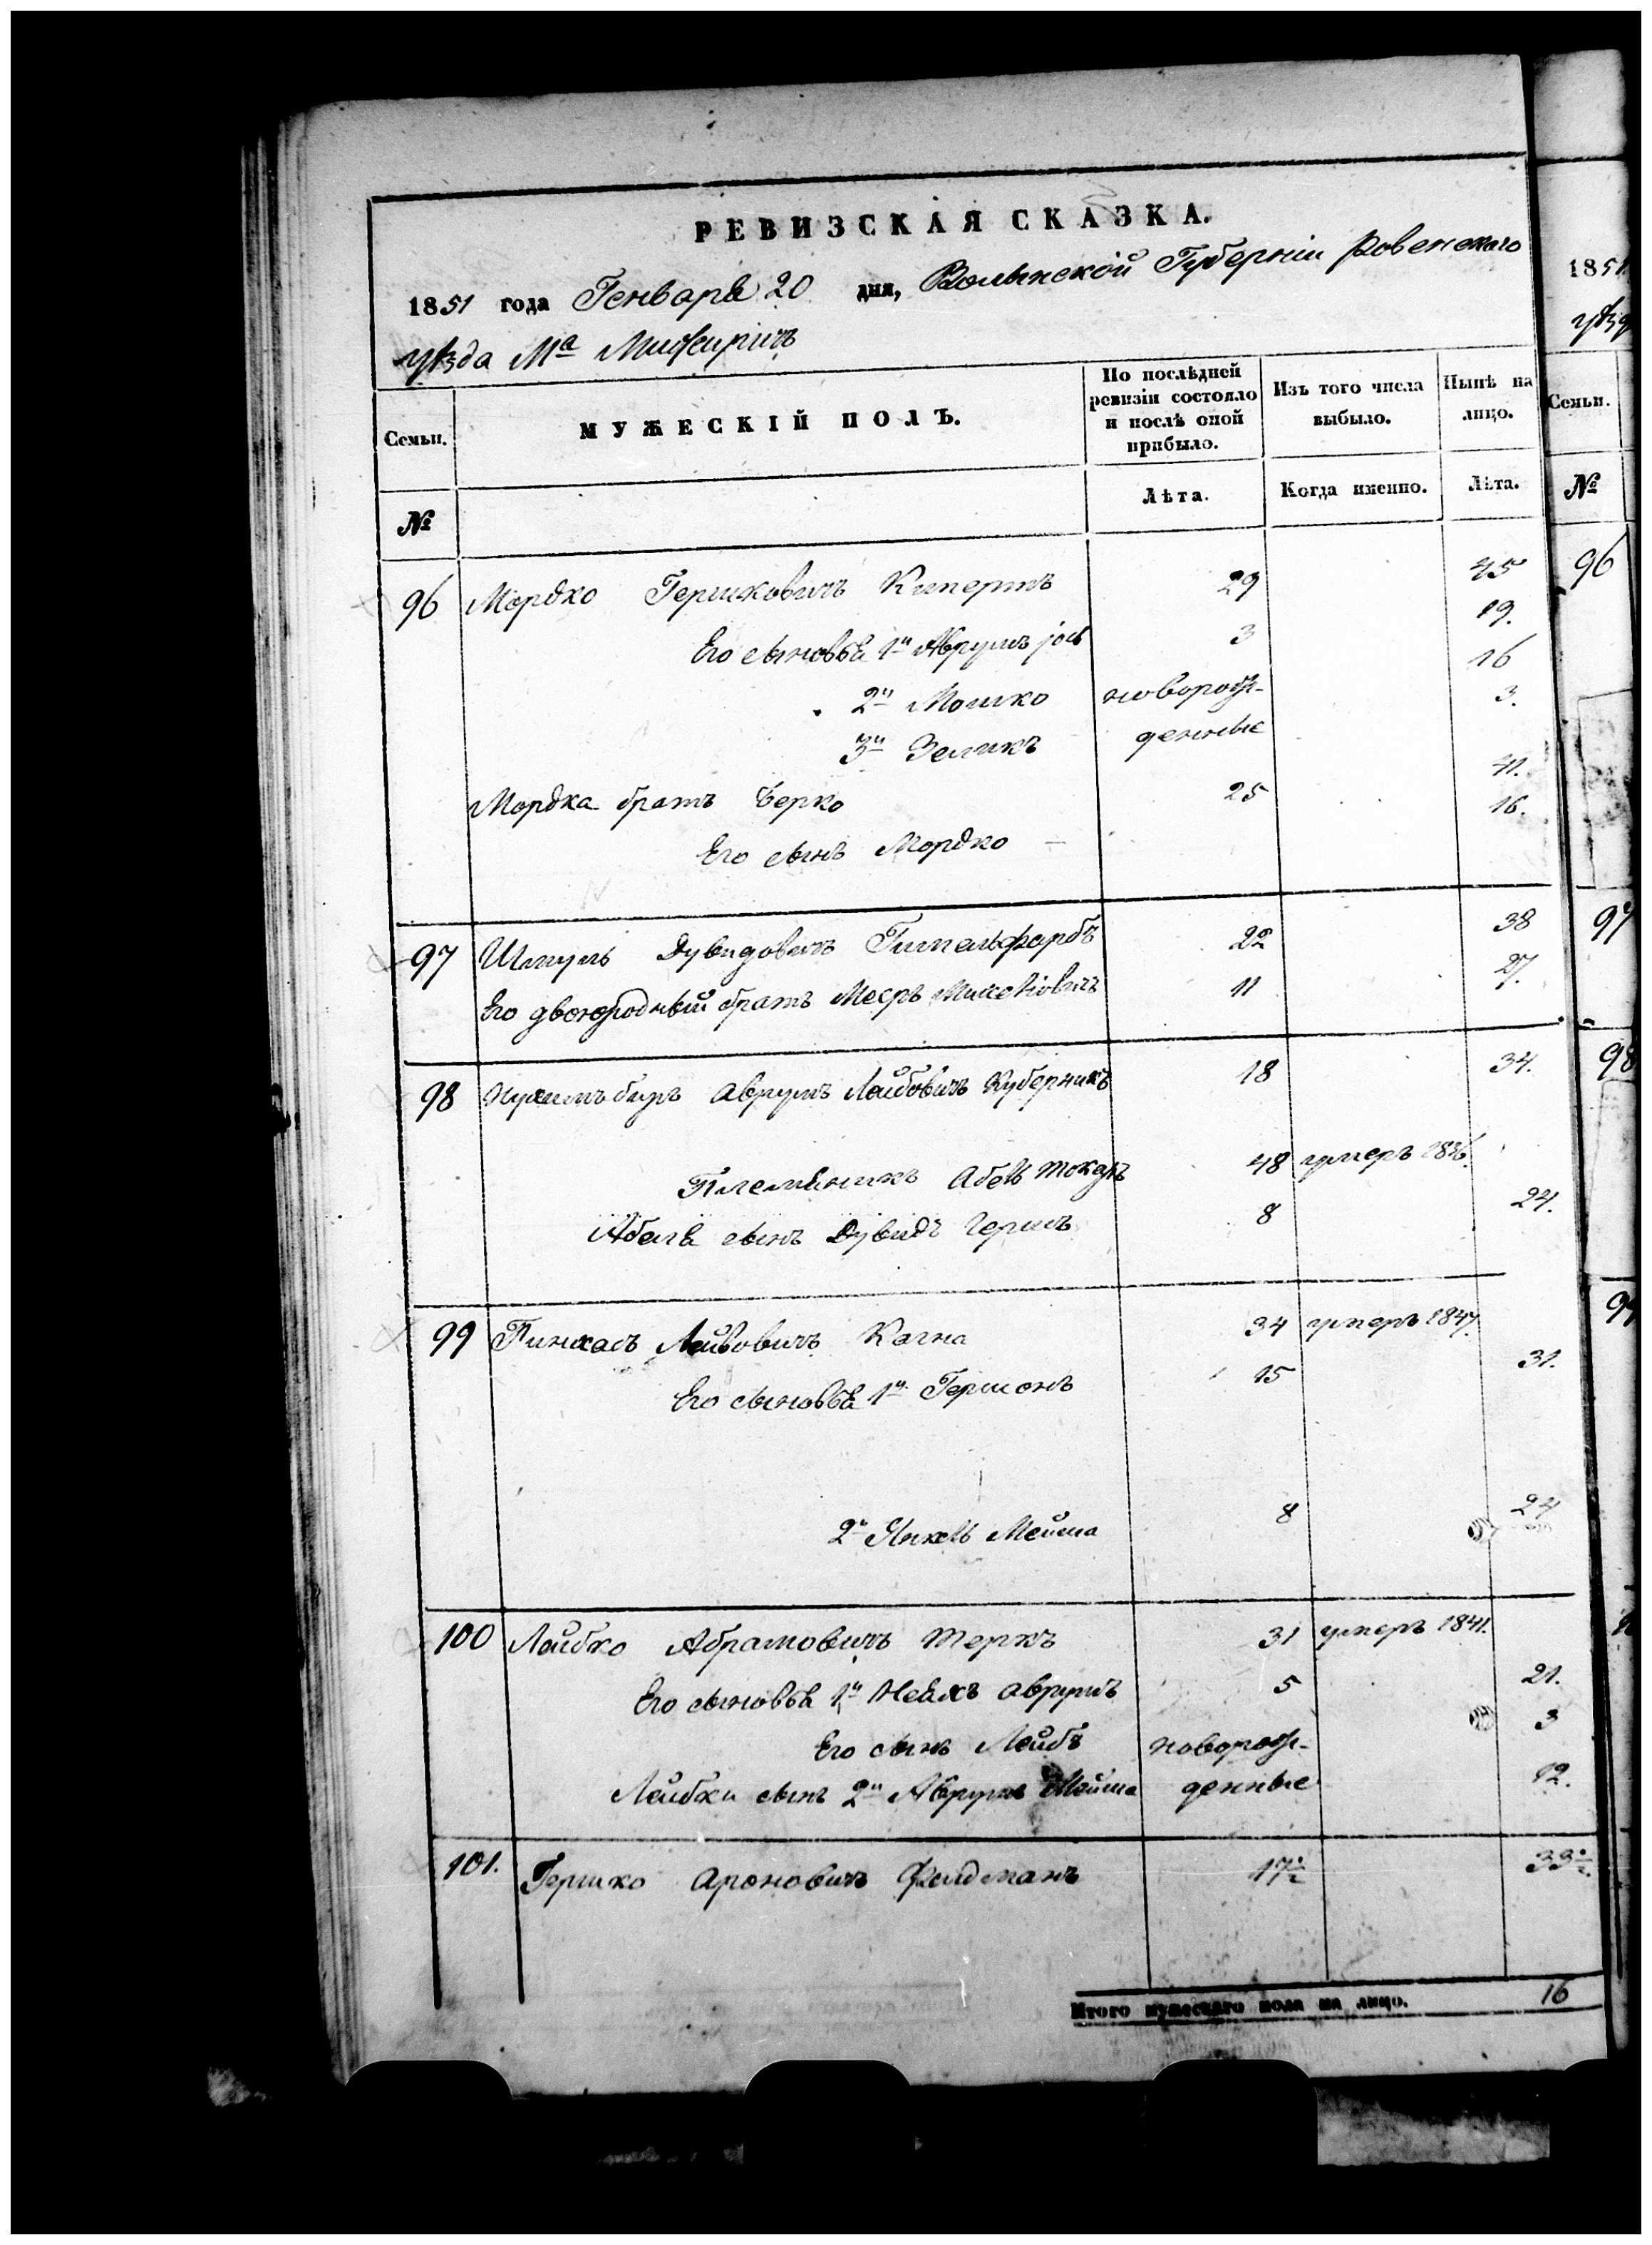 РЕВИЗСКАЯ СКАЗКА.
1851 года Генваря 20 дня, Волынской Губерніи Ровенскаго
уѣзда Ма Мижиричъ
1851
уѣзд
Семьи.
МУЖЕСКІЙ ПОЛЪ.
По послѣдней ревизіи состояло и послѣ оной прибыло.
Изъ того числа выбыло.
Нынѣ на лицо.
Семьи.
№
Лѣта.
Когда именно.
Лѣта.
№
96 Мордко Гершковичъ Кипертъ 29 45 96
Его сыновья 1й Аврумъ іось 3 19.
2й Мошко новорож- 16
3й Зеликъ денные 3.
Мордка братъ Берко 25 41.
Его сынъ Мордко – 16.
97 Шмуль Дувидовичъ Гимельфарбъ 22 38 97
Его двоюродный братъ Мееръ 11 27.
98 Аврумъ Лейбовичъ Куберникъ 18 34. 98
Племянникъ Абель Токарь 48 умеръ 1836.
Абеля сынъ Дувидъ Гершъ 8 24.
99 Пинхасъ Лейбовичъ Кагна 34 умеръ 1847. 99
Его сыновья 1й Гершонъ 15 31.
2й Янкель Мейша 8 24
100 Лейбко Абрамовичъ Теркъ 31 умеръ 1841.
Его сыновья 1й Неахъ Аврумъ 5 21.
Его сынъ Лейбъ новорож- 3
Лейбки сынъ 2й Аврумъ Мейша денные 12.
101. Гершко Ароновичъ Фелдманъ 17½ 33½.
Итого мужескаго пола на лицо. 16